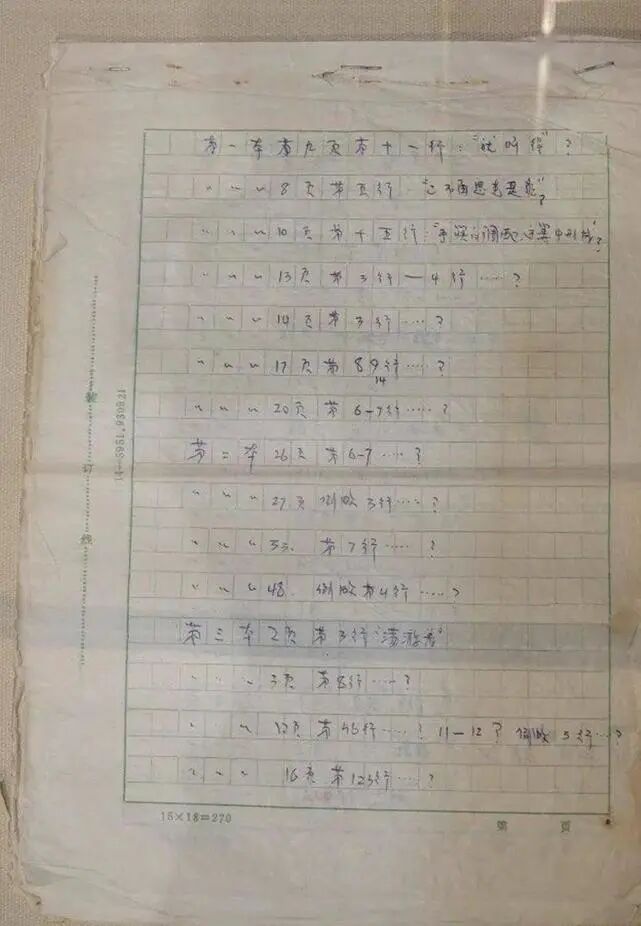 第一本第九页第十一行："就叫得"？
〃〃〃8页第五行
〃〃〃10页第十五行："
〃〃〃13页第3行—4行……？
〃〃〃14页第3行……？
〃〃〃17页第8 9行……？
14
〃〃〃20页第6-7行……？
第二本26页第6-7……？
〃〃〃27页倒数3行……？
〃〃〃33. 第7行……？
〃〃〃48. 倒数第4行……？
第三本2页第3行"
〃〃〃3页第8行……？
〃〃〃12页第 行……？11—12？倒数5行……？
〃〃〃16页第12行……？
装订线
15×18=270
第 页